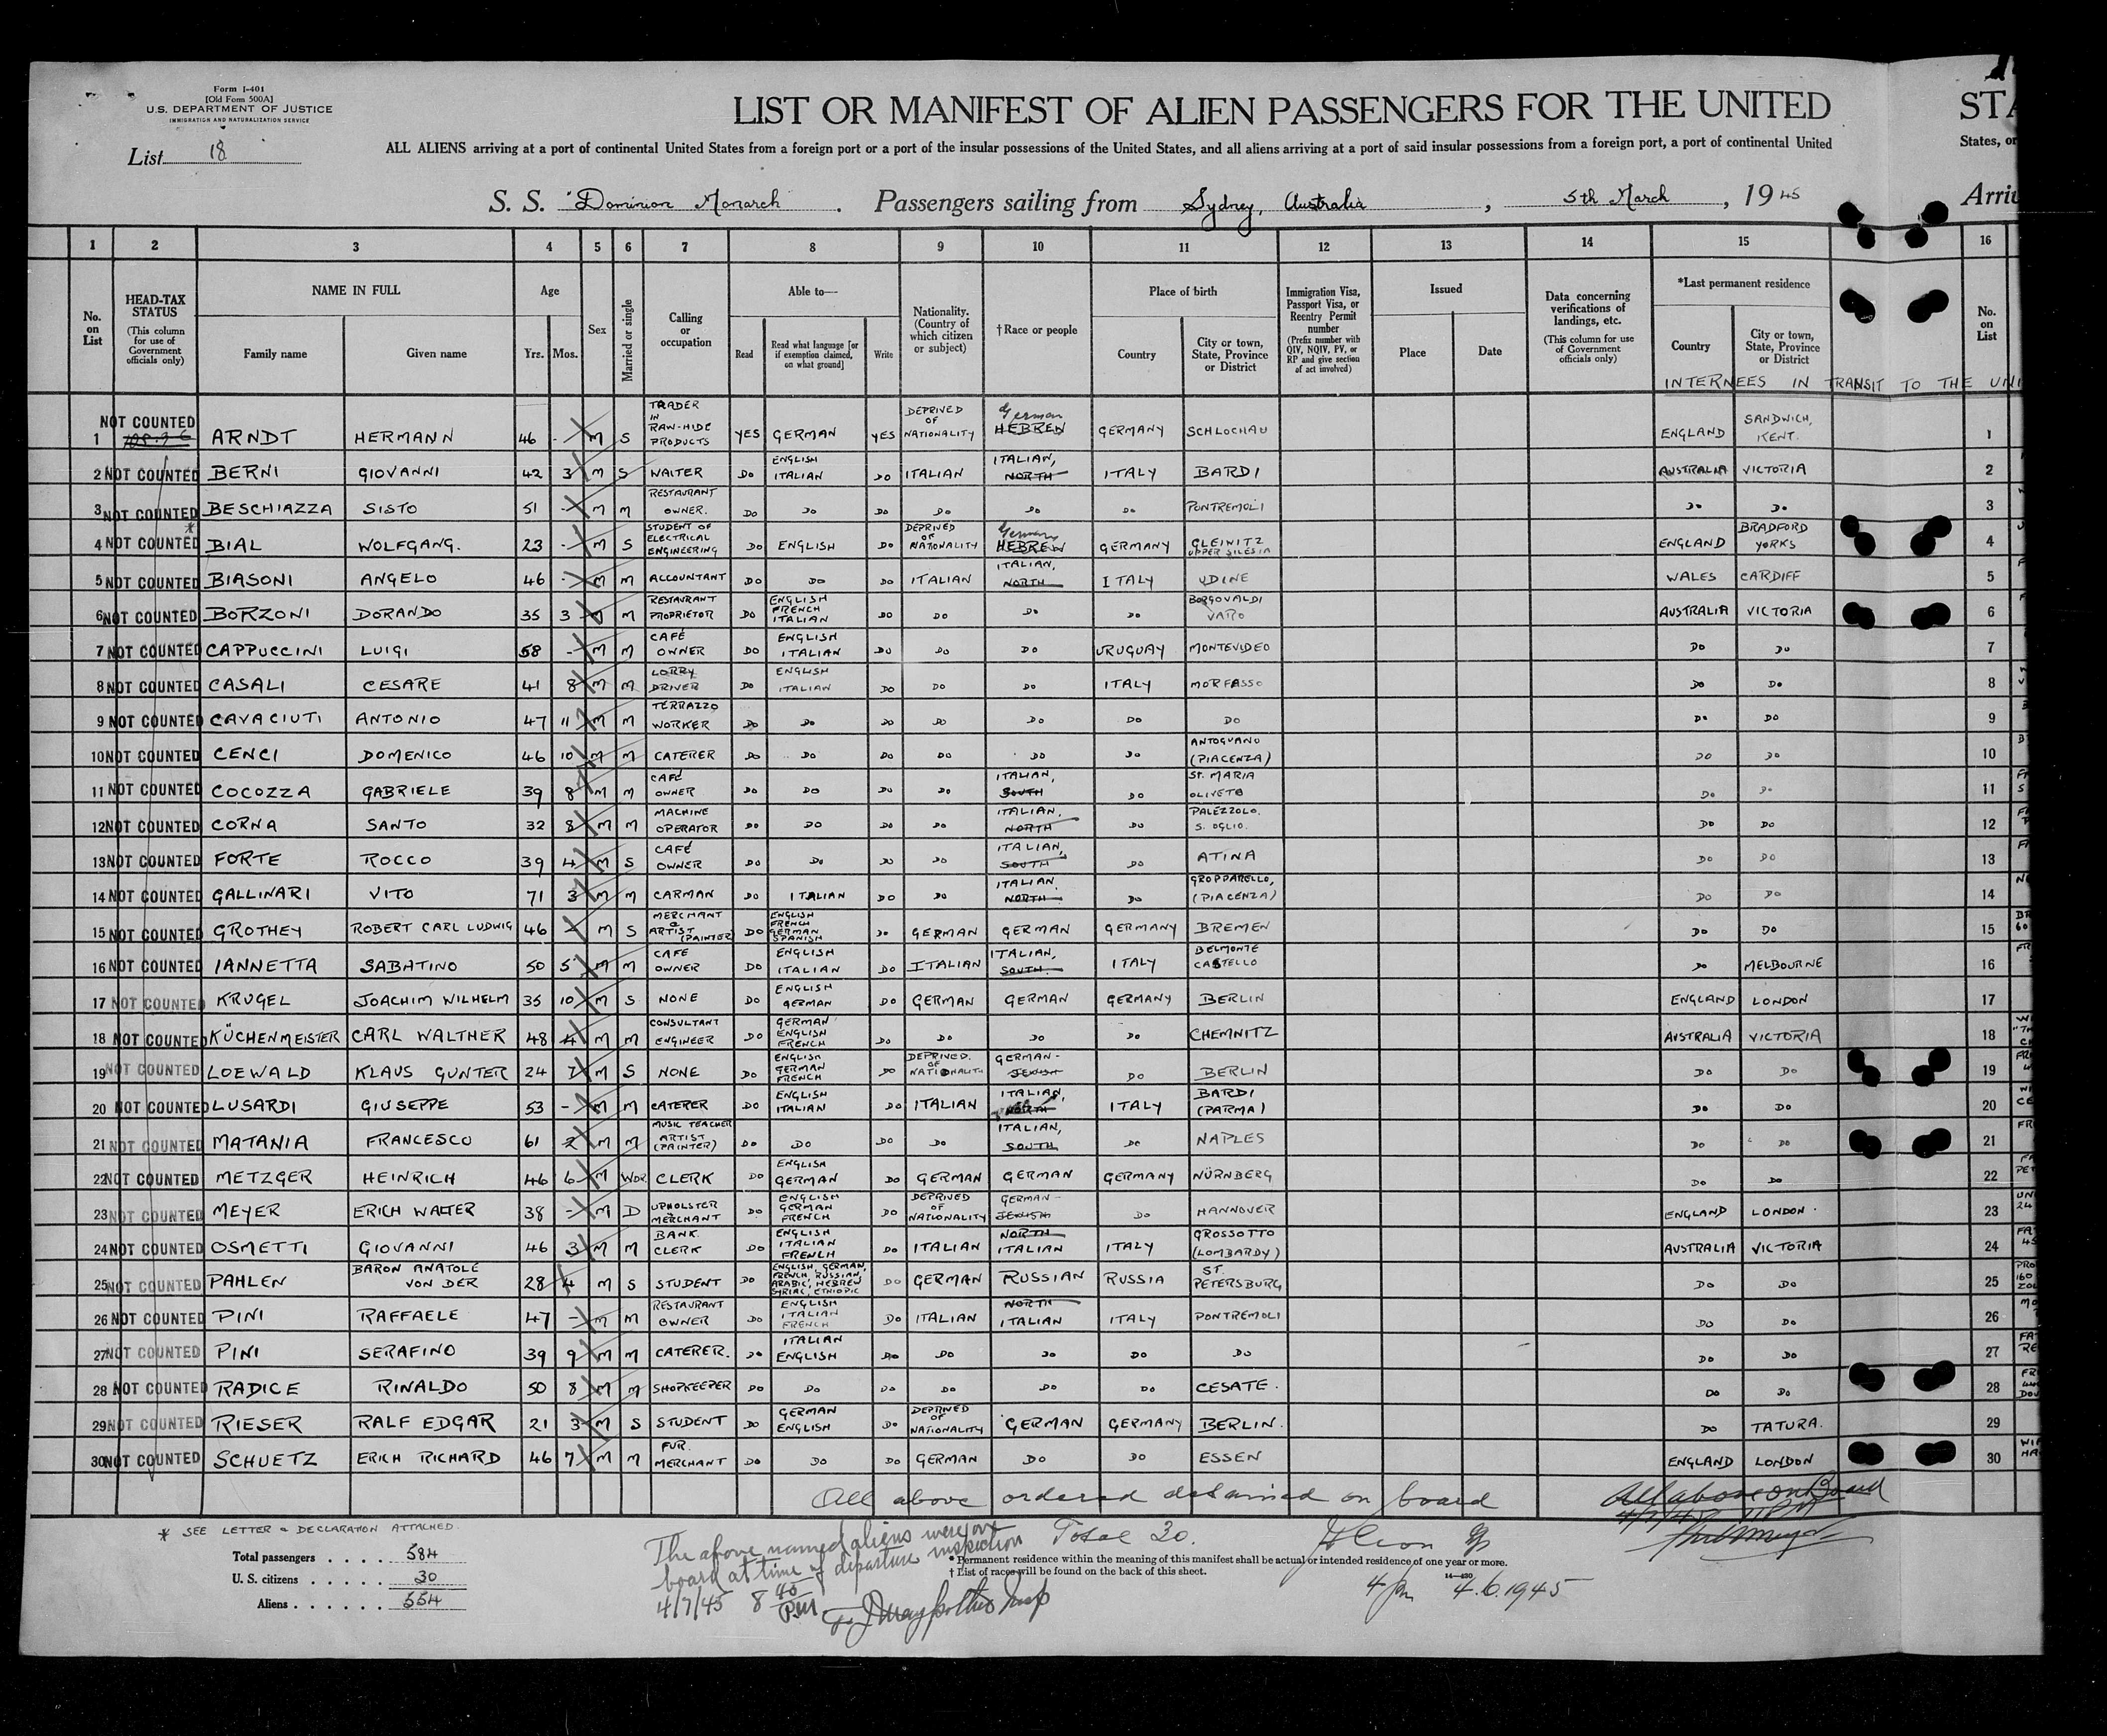 Form I-401
[Old Form 500A]
U.S. DEPARTMENT OF JUSTICE
IMMIGRATION AND NATURALIZATION SERVICE
List 18
LIST OR MANIFEST OF ALIEN PASSENGERS FOR THE UNITED STA
ALL ALIENS arriving at a port of continental United States from a foreign port or a port of the insular possessions of the United States, and all aliens arriving at a port of said insular possessions from a foreign port, a port of continental United States, or
S. S. "Dominion Monarch. Passengers sailing from Sydney, Australia, 5th March, 1945 Arriv
1 2 3 4 5 6 7 8 9 10 11 12 13 14 15 16
No. on List
HEAD-TAX STATUS (This column for use of Government officials only)
NAME IN FULL Family name Given name
Age Yrs. Mos.
Sex
Married or single
Calling or occupation
Able to— Read Read what language [or if exemption claimed, on what ground] Write
Nationality. (Country of which citizen or subject)
†Race or people
Place of birth Country City or town, State, Province or District
Immigration Visa, Passport Visa, or Reentry Permit number (Prefix number with QIV, NQIV, PV, or RP and give section of act involved)
Issued Place Date
Data concerning verifications of landings, etc. (This column for use of Government officials only)
*Last permanent residence Country City or town, State, Province or District
No. on List
INTERNEES IN TRANSIT TO THE UNI
1 NOT COUNTED ARNDT HERMANN 46 - M S TRADER IN RAW-HIDE PRODUCTS YES GERMAN YES DEPRIVED OF NATIONALITY German HEBREW GERMANY SCHLOCHAU ENGLAND SANDWICH, KENT. 1
2 NOT COUNTED BERNI GIOVANNI 42 3 M S WAITER DO ENGLISH ITALIAN DO ITALIAN ITALIAN, NORTH ITALY BARDI AUSTRALIA VICTORIA 2
3 NOT COUNTED BESCHIAZZA SISTO 51 - M M RESTAURANT OWNER. DO DO DO DO DO DO PONTREMOLI DO DO 3
4 NOT COUNTED * BIAL WOLFGANG. 23 - M S STUDENT OF ELECTRICAL ENGINEERING DO ENGLISH DO DEPRIVED OF NATIONALITY German HEBREW GERMANY GLEIWITZ UPPER SILESIA ENGLAND BRADFORD YORKS 4
5 NOT COUNTED BIASONI ANGELO 46 - M M ACCOUNTANT DO DO DO ITALIAN ITALIAN, NORTH ITALY UDINE WALES CARDIFF 5
6 NOT COUNTED BORZONI DORANDO 35 3 M M RESTAURANT PROPRIETOR DO ENGLISH FRENCH ITALIAN DO DO DO DO BORGOVALDI VARO AUSTRALIA VICTORIA 6
7 NOT COUNTED CAPPUCCINI LUIGI 58 - M M CAFÉ OWNER DO ENGLISH ITALIAN DO DO DO URUGUAY MONTEVIDEO DO DO 7
8 NOT COUNTED CASALI CESARE 41 8 M M LORRY DRIVER DO ENGLISH ITALIAN DO DO DO ITALY MORFASSO DO DO 8
9 NOT COUNTED CAVACIUTI ANTONIO 47 11 M M TERRAZZO WORKER DO DO DO DO DO DO DO DO DO 9
10 NOT COUNTED CENCI DOMENICO 46 10 M M CATERER DO DO DO DO DO DO ANTOGUANO (PIACENZA) DO DO 10
11 NOT COUNTED COCOZZA GABRIELE 39 8 M M CAFÉ OWNER DO DO DO DO ITALIAN, SOUTH DO St. MARIA OLIVETO DO DO 11
12 NOT COUNTED CORNA SANTO 32 8 M M MACHINE OPERATOR DO DO DO DO ITALIAN, NORTH DO PALEZZOLO. S. OGLIO. DO DO 12
13 NOT COUNTED FORTE ROCCO 39 4 M S CAFÉ OWNER DO DO DO DO ITALIAN, SOUTH DO ATINA DO DO 13
14 NOT COUNTED GALLINARI VITO 71 3 M M CARMAN DO ITALIAN DO DO ITALIAN. NORTH DO GROPPARELLO, (PIACENZA) DO DO 14
15 NOT COUNTED GROTHEY ROBERT CARL LUDWIG 46 - M S MERCHANT & ARTIST (PAINTER) DO ENGLISH FRENCH GERMAN SPANISH DO GERMAN GERMAN GERMANY BREMEN DO DO 15
16 NOT COUNTED IANNETTA SABATINO 50 5 M M CAFE OWNER DO ENGLISH ITALIAN DO ITALIAN ITALIAN, SOUTH. ITALY BELMONTE CASTELLO DO MELBOURNE 16
17 NOT COUNTED KRUGEL JOACHIM WILHELM 35 10 M S NONE DO ENGLISH GERMAN DO GERMAN GERMAN GERMANY BERLIN ENGLAND LONDON 17
18 NOT COUNTED KÜCHENMEISTER CARL WALTHER 48 4 M M CONSULTANT ENGINEER DO GERMAN ENGLISH FRENCH DO DO DO DO CHEMNITZ AUSTRALIA VICTORIA 18
19 NOT COUNTED LOEWALD KLAUS GUNTER 24 7 M S NONE DO ENGLISH GERMAN FRENCH DO DEPRIVED. OF NATIONALITY GERMAN - JEWISH DO BERLIN DO DO 19
20 NOT COUNTED LUSARDI GIUSEPPE 53 - M M CATERER DO ENGLISH ITALIAN DO ITALIAN ITALIAN, NORTH ITALY BARDI (PARMA) DO DO 20
21 NOT COUNTED MATANIA FRANCESCO 61 2 M M MUSIC TEACHER ARTIST (PAINTER) DO DO DO DO ITALIAN, SOUTH DO NAPLES DO DO 21
22 NOT COUNTED METZGER HEINRICH 46 6 M WDR CLERK DO ENGLISH GERMAN DO GERMAN GERMAN GERMANY NÜRNBERG DO DO 22
23 NOT COUNTED MEYER ERICH WALTER 38 - M D UPHOLSTER MERCHANT DO ENGLISH GERMAN FRENCH DO DEPRIVED OF NATIONALITY GERMAN - JEWISH DO HANNOVER ENGLAND LONDON. 23
24 NOT COUNTED OSMETTI GIOVANNI 46 3 M M BANK. CLERK DO ENGLISH ITALIAN FRENCH DO ITALIAN NORTH ITALIAN ITALY GROSSOTTO (LOMBARDY) AUSTRALIA VICTORIA 24
25 NOT COUNTED PAHLEN BARON ANATOLE VON DER 28 4 M S STUDENT DO ENGLISH, GERMAN, FRENCH, RUSSIAN, ARABIC, HEBREW SYRIAC, ETHIOPIC DO GERMAN RUSSIAN RUSSIA ST. PETERSBURG DO DO 25
26 NOT COUNTED PINI RAFFAELE 47 - M M RESTAURANT OWNER DO ENGLISH ITALIAN FRENCH DO ITALIAN NORTH ITALIAN ITALY PONTREMOLI DO DO 26
27 NOT COUNTED PINI SERAFINO 39 9 M M CATERER. DO ITALIAN ENGLISH DO DO DO DO DO DO DO 27
28 NOT COUNTED RADICE RINALDO 50 8 M M SHOPKEEPER DO DO DO DO DO DO CESATE. DO DO 28
29 NOT COUNTED RIESER RALF EDGAR 21 3 M S STUDENT DO GERMAN ENGLISH DO DEPRIVED OF NATIONALITY GERMAN GERMANY BERLIN. DO TATURA. 29
30 NOT COUNTED SCHUETZ ERICH RICHARD 46 7 M M FUR. MERCHANT DO DO DO GERMAN DO DO ESSEN ENGLAND LONDON 30
All above ordered detained on board
All above on Board
4/7/45 11 PM
* SEE LETTER & DECLARATION ATTACHED.
Total passengers . . . . 584
U. S. citizens . . . . . 30
Aliens . . . . . . 554
The above named aliens were on
board at time of departure inspection
4/7/45 8 40 P.M.
Total 30.
* Permanent residence within the meaning of this manifest shall be actual or intended residence of one year or more.
† List of races will be found on the back of this sheet.
4 pm 4.6.1945